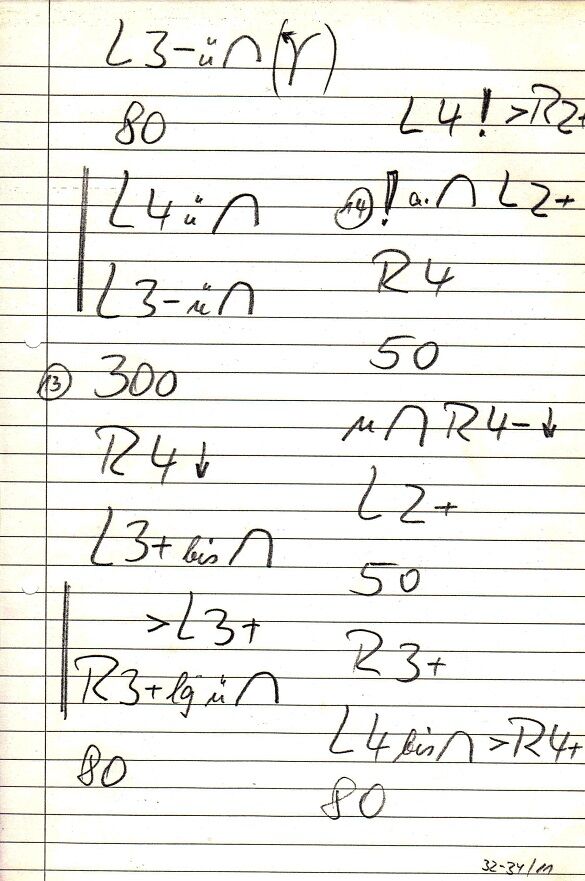 L3-ü∩(↰)
80
L4ü∩
L3-ü∩
⑬ 300
R4↓
L3+ bis ∩
>L3+
R3+ lg ü∩
80
L4! >R2+
⑭! a.∩ L2+
R4
50
∩ R4-↓
L2+
50
R3+
L4 bis ∩ >R4+
80
32-34/11